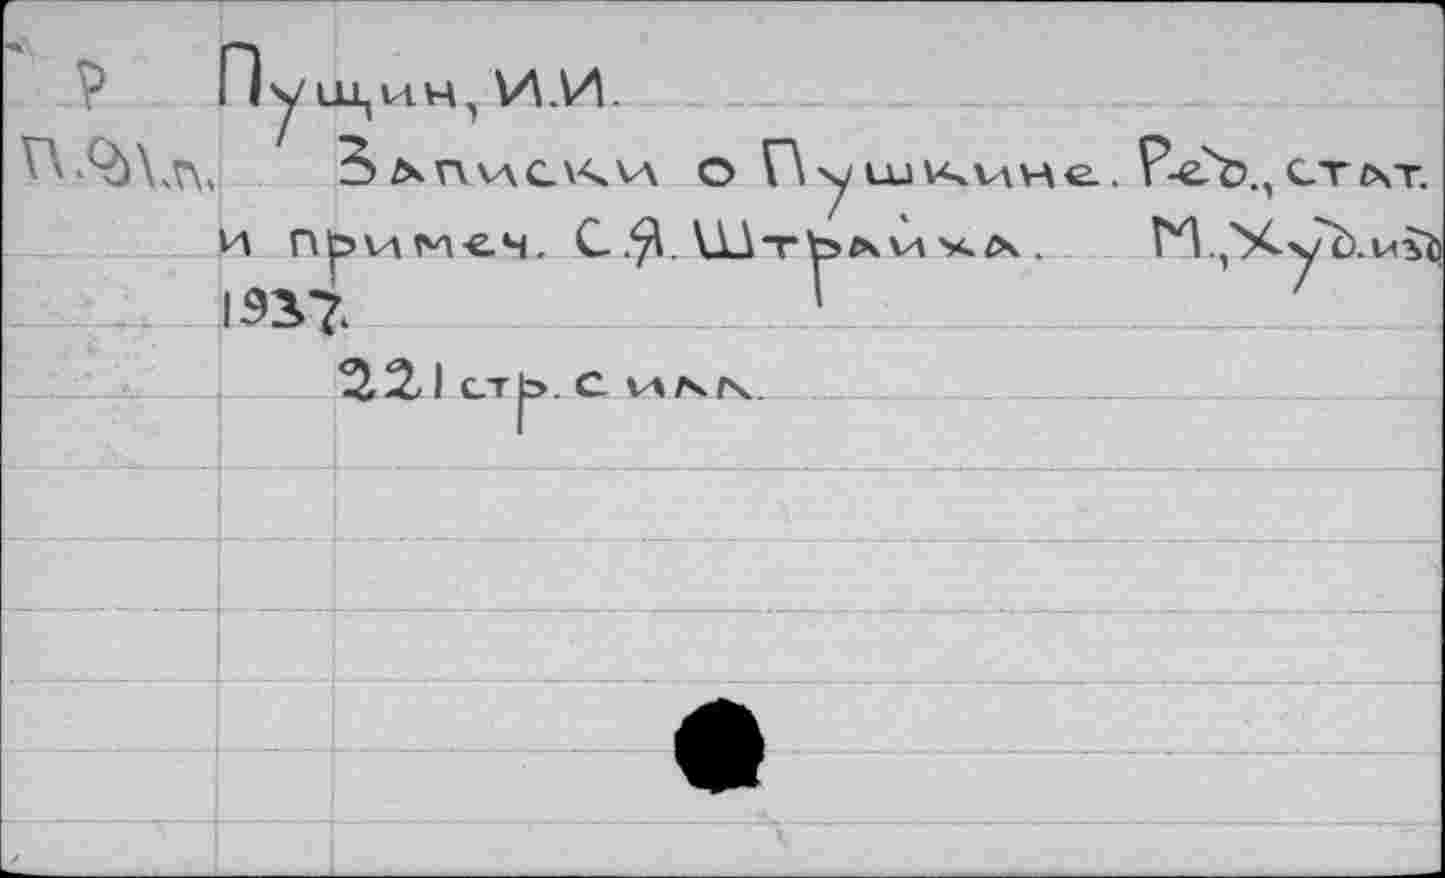 Р Пущин, И.И.
Записки о Пушкине. Ред., стат.
и примеч. С.Я. Штрайха. М., Худ.изд
1937.
221 стр. с илл.